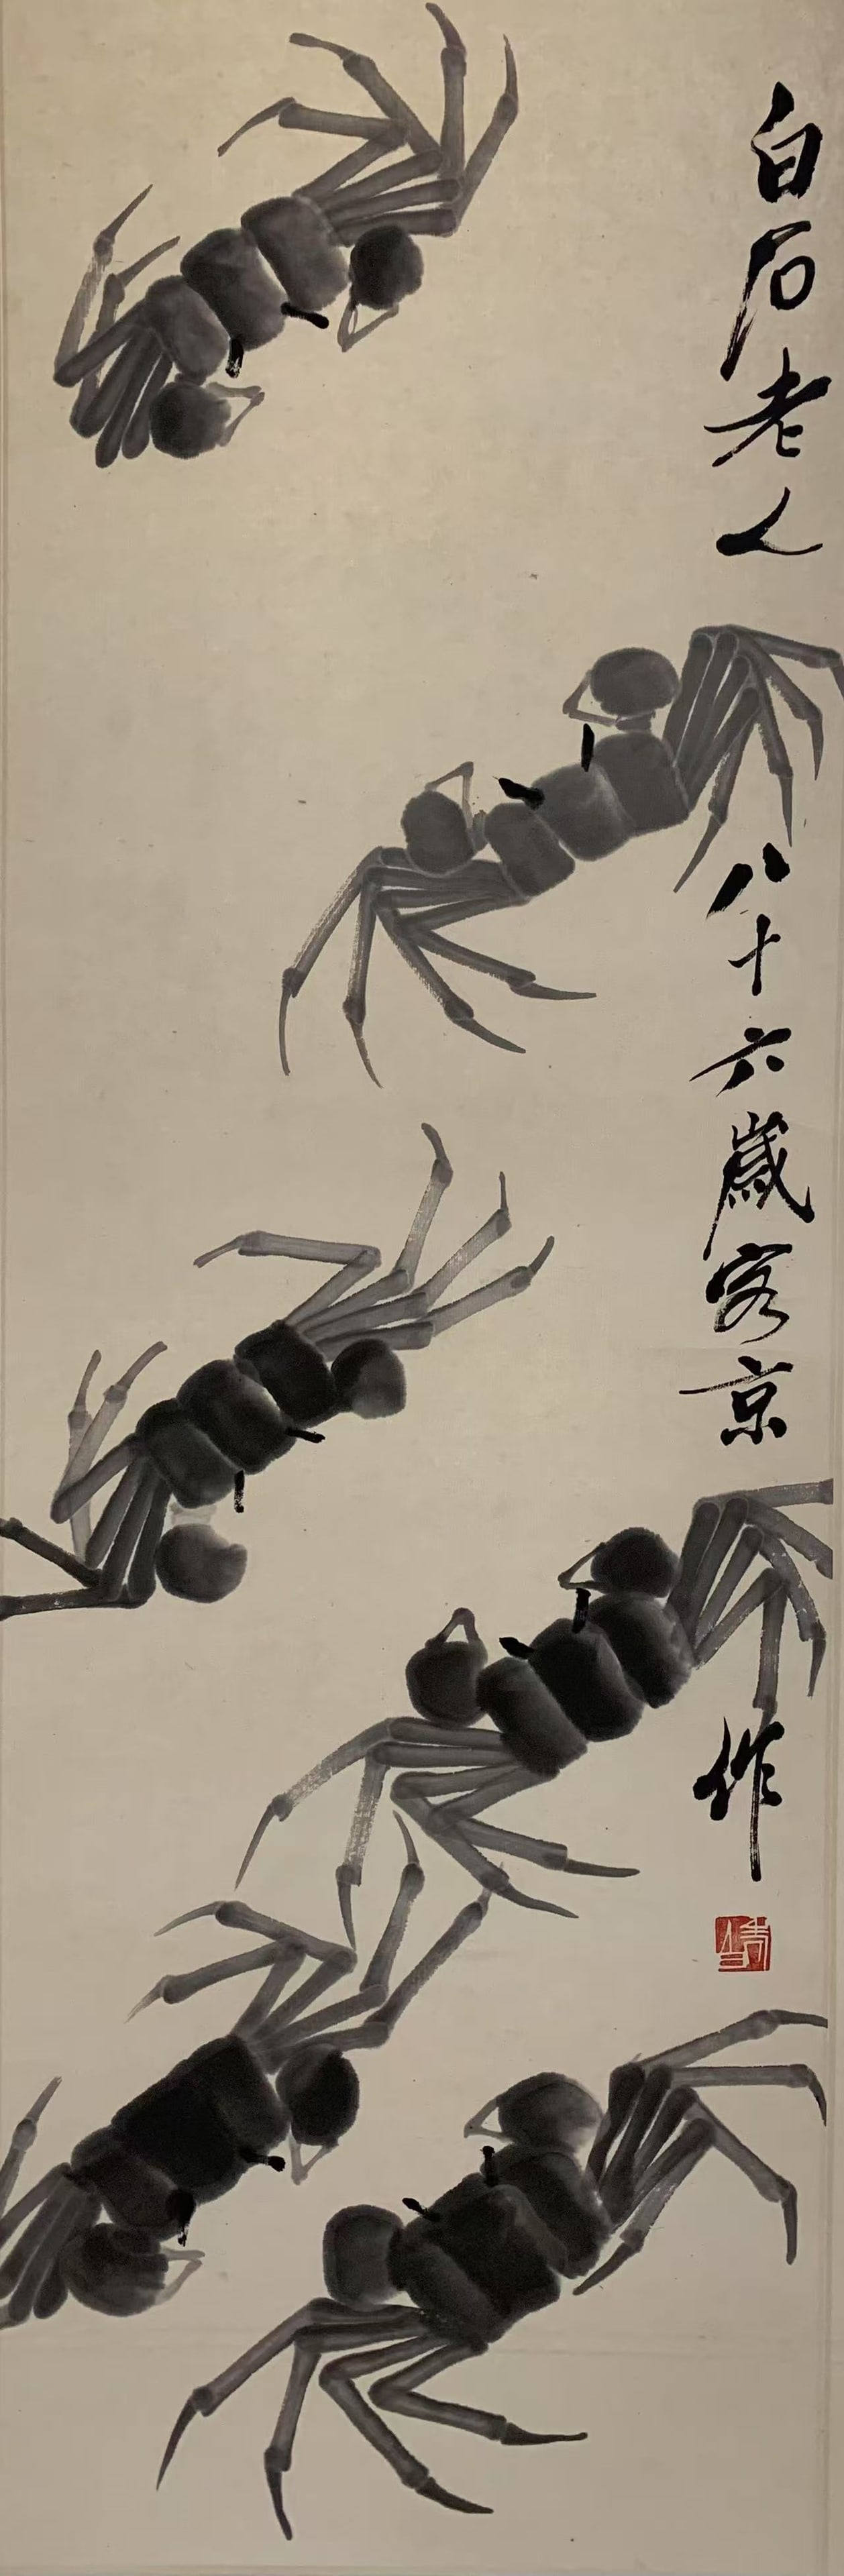 白石老人八十六歲客京作